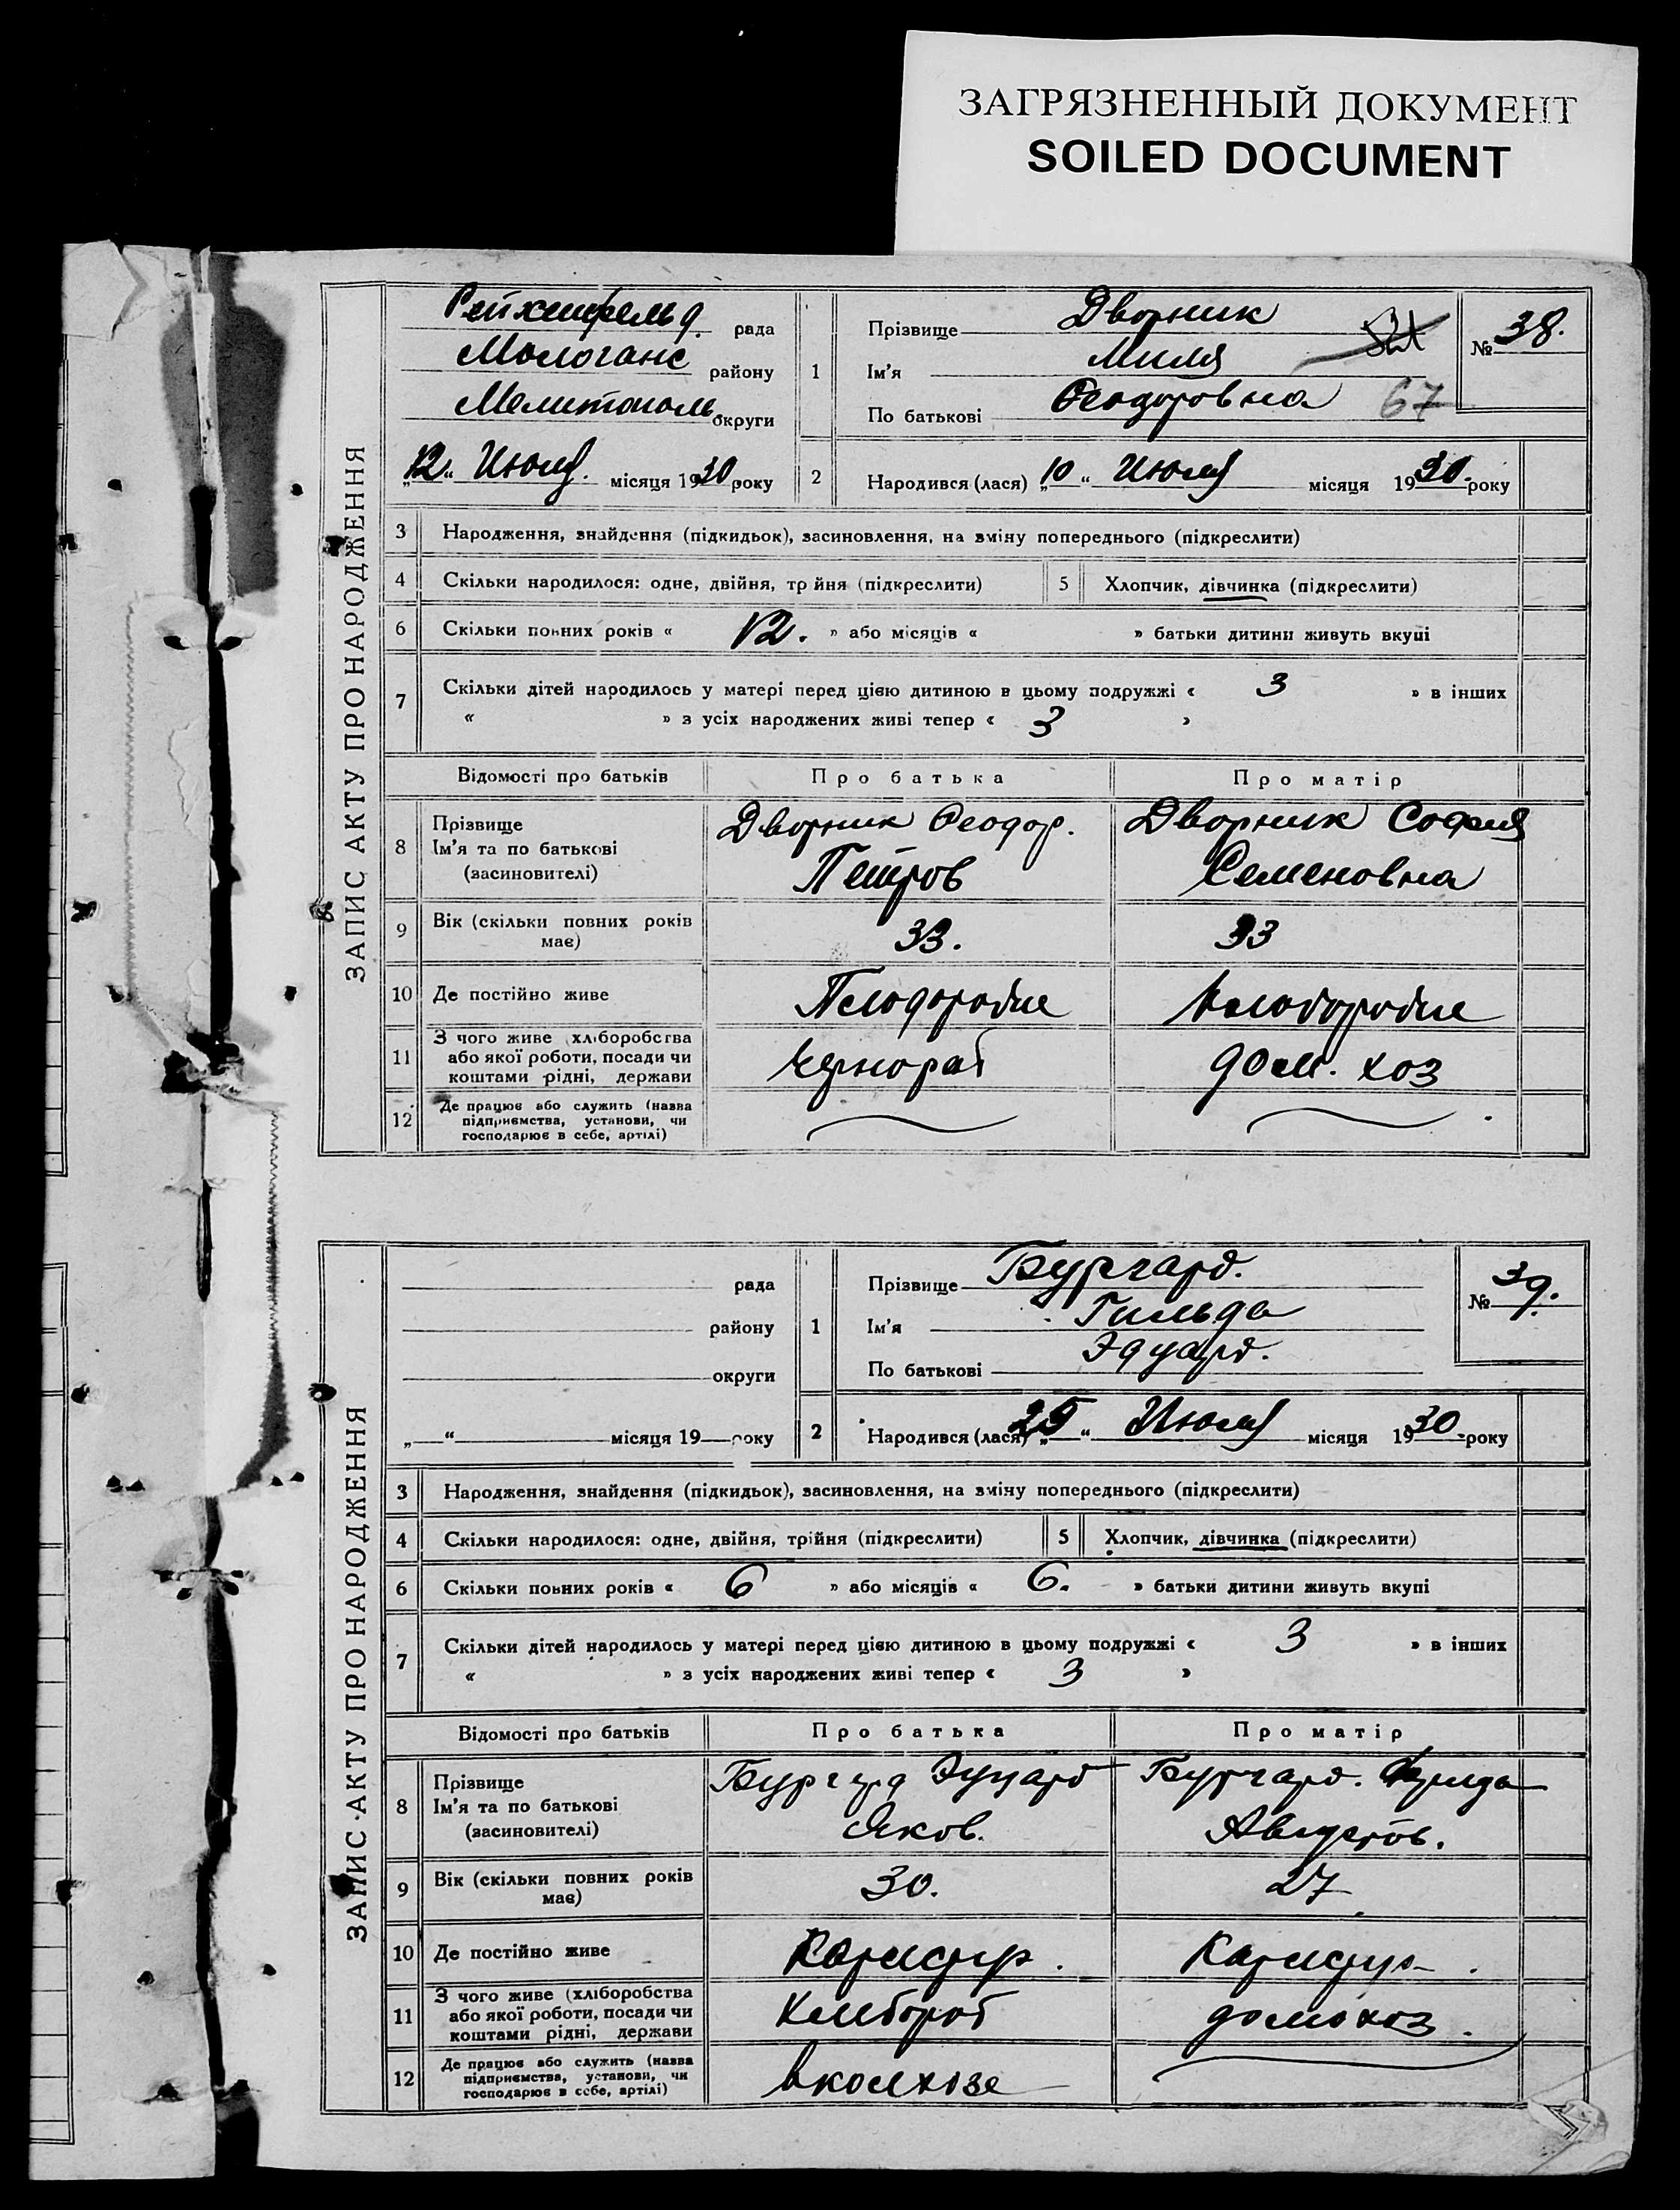 ЗАГРЯЗНЕННЫЙ ДОКУМЕНТ
SOILED DOCUMENT
ЗАПИС АКТУ ПРО НАРОДЖЕННЯ
Рейхенфельд рада
Мологанс району
Мелитополь округи
„12“ Июля. місяця 1930 року
1
Прізвище Дворник
Ім’я Миля
По батькові Феодоровна 67
№ 38.
2 Народився (лася) „10“ Июля місяця 1930. року
3 Народження, знайдення (підкидьок), засиновлення, на зміну попереднього (підкреслити)
4 Скільки народилося: одне, двійня, трійня (підкреслити) 5 Хлопчик, дівчинка (підкреслити)
6 Скільки повних років « 12. » або місяців « » батьки дитини живуть вкупі
7 Скільки дітей народилось у матері перед цією дитиною в цьому подружжі « 3 » в інших
« » з усіх народжених живі тепер « 3 »
Відомості про батьків Про батька Про матір
8 Прізвище Дворник Феодор. Дворник София
Ім’я та по батькові Петров Семеновна
(засиновителі)
9 Вік (скільки повних років має) 33. 33
10 Де постійно живе Плодородие Плодородие
11 З чого живе (хліборобства
або якої роботи, посади чи Чернораб дом. хоз
коштами рідні, держави
12 Де працює або служить (назва
підприємства, установи, чи
господарює в себе, артілі)
ЗАПИС АКТУ ПРО НАРОДЖЕННЯ
рада
району
округи
„ “ місяця 19 року
1
Прізвище Бургард.
Ім’я Гильда
По батькові Эдуард.
№ 39.
2 Народився (лася) „25“ Июля місяця 1930. року
3 Народження, знайдення (підкидьок), засиновлення, на зміну попереднього (підкреслити)
4 Скільки народилося: одне, двійня, трійня (підкреслити) 5 Хлопчик, дівчинка (підкреслити)
6 Скільки повних років « 6 » або місяців « 6. » батьки дитини живуть вкупі
7 Скільки дітей народилось у матері перед цією дитиною в цьому подружжі « 3 » в інших
« » з усіх народжених живі тепер « 3 »
Відомості про батьків Про батька Про матір
8 Прізвище Бургард Эдуард Бургард. Фрида
Ім’я та по батькові Яков. Августов.
(засиновителі)
9 Вік (скільки повних років має) 30. 27
10 Де постійно живе
11 З чого живе (хліборобства
або якої роботи, посади чи Хлебороб домохоз.
коштами рідні, держави
12 Де працює або служить (назва
підприємства, установи, чи в колхозе
господарює в себе, артілі)